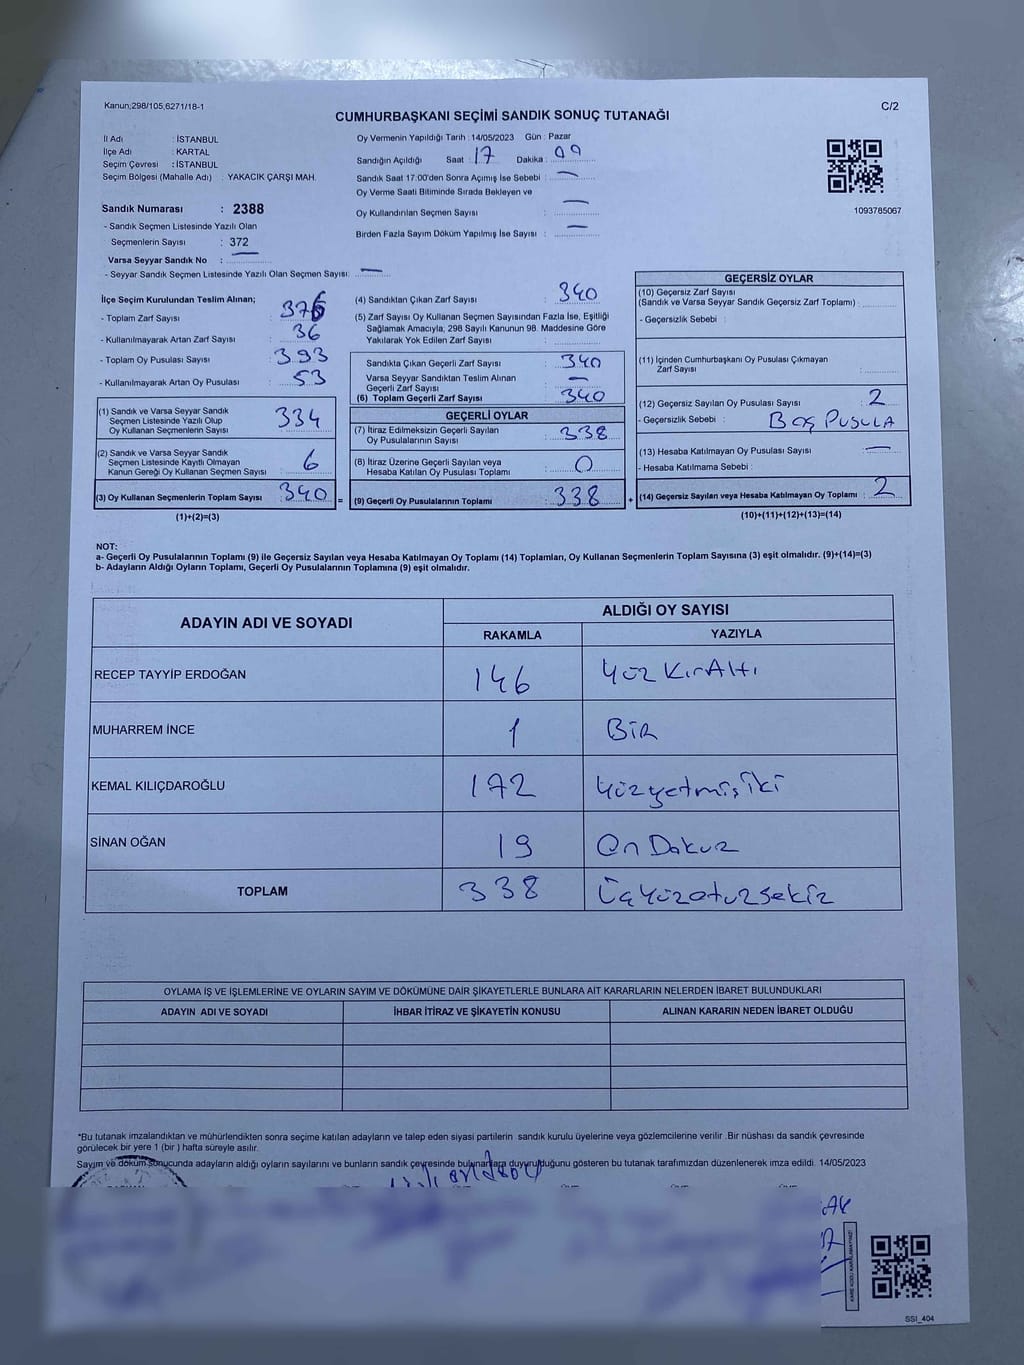 Kanun;298/105,6271/18-1
C/2
CUMHURBAŞKANI SEÇİMİ SANDIK SONUÇ TUTANAĞI
İl Adı : İSTANBUL
İlçe Adı : KARTAL
Seçim Çevresi : İSTANBUL
Seçim Bölgesi (Mahalle Adı) : YAKACIK ÇARŞI MAH.
Oy Vermenin Yapıldığı Tarih : 14/05/2023 Gün : Pazar
Sandığın Açıldığı Saat : 17 Dakika :
Sandık Saat 17:00'den Sonra Açımış İse Sebebi : —
Oy Verme Saati Bitiminde Sırada Bekleyen ve
Oy Kullandırılan Seçmen Sayısı : —
Birden Fazla Sayım Döküm Yapılmış İse Sayısı : —
1093765067
Sandık Numarası : 2388
- Sandık Seçmen Listesinde Yazılı Olan
Seçmenlerin Sayısı : 372
Varsa Seyyar Sandık No : —
- Seyyar Sandık Seçmen Listesinde Yazılı Olan Seçmen Sayısı: —
İlçe Seçim Kurulundan Teslim Alınan;
- Toplam Zarf Sayısı : 376
- Kullanılmayarak Artan Zarf Sayısı : 36
- Toplam Oy Pusulası Sayısı : 393
- Kullanılmayarak Artan Oy Pusulası : 53
(1) Sandık ve Varsa Seyyar Sandık
Seçmen Listesinde Yazılı Olup
Oy Kullanan Seçmenlerin Sayısı : 334
(2) Sandık ve Varsa Seyyar Sandık
Seçmen Listesinde Kayıtlı Olmayan
Kanun Gereği Oy Kullanan Seçmen Sayısı : 6
(3) Oy Kullanan Seçmenlerin Toplam Sayısı : 340 =
(1)+(2)=(3)
(4) Sandıktan Çıkan Zarf Sayısı : 340
(5) Zarf Sayısı Oy Kullanan Seçmen Sayısından Fazla İse, Eşitliği
Sağlamak Amacıyla; 298 Sayılı Kanunun 98. Maddesine Göre
Yakılarak Yok Edilen Zarf Sayısı :
Sandıkta Çıkan Geçerli Zarf Sayısı : 340
Varsa Seyyar Sandıktan Teslim Alınan
Geçerli Zarf Sayısı : —
(6) Toplam Geçerli Zarf Sayısı : 340
GEÇERLİ OYLAR
(7) İtiraz Edilmeksizin Geçerli Sayılan
Oy Pusulalarının Sayısı : 338
(8) İtiraz Üzerine Geçerli Sayılan veya
Hesaba Katılan Oy Pusulası Toplamı : 0
(9) Geçerli Oy Pusulalarının Toplamı : 338 +
GEÇERSİZ OYLAR
(10) Geçersiz Zarf Sayısı
(Sandık ve Varsa Seyyar Sandık Geçersiz Zarf Toplamı) :
- Geçersizlik Sebebi :
(11) İçinden Cumhurbaşkanı Oy Pusulası Çıkmayan
Zarf Sayısı :
(12) Geçersiz Sayılan Oy Pusulası Sayısı : 2
- Geçersizlik Sebebi : BOŞ PUSULA
(13) Hesaba Katılmayan Oy Pusulası Sayısı : —
- Hesaba Katılmama Sebebi :
(14) Geçersiz Sayılan veya Hesaba Katılmayan Oy Toplamı : 2
(10)+(11)+(12)+(13)=(14)
NOT:
a- Geçerli Oy Pusulalarının Toplamı (9) ile Geçersiz Sayılan veya Hesaba Katılmayan Oy Toplamı (14) Toplamları, Oy Kullanan Seçmenlerin Toplam Sayısına (3) eşit olmalıdır. (9)+(14)=(3)
b- Adayların Aldığı Oyların Toplamı, Geçerli Oy Pusulalarının Toplamına (9) eşit olmalıdır.
ADAYIN ADI VE SOYADI
ALDIĞI OY SAYISI
RAKAMLA YAZIYLA
RECEP TAYYİP ERDOĞAN 146 Yüz KırAltı
MUHARREM İNCE 1 Bir
KEMAL KILIÇDAROĞLU 172 Yüzyetmişiki
SİNAN OĞAN 19 On Dokuz
TOPLAM 338 Üçyüzotuzsekiz
OYLAMA İŞ VE İŞLEMLERİNE VE OYLARIN SAYIM VE DÖKÜMÜNE DAİR ŞİKAYETLERLE BUNLARA AİT KARARLARIN NELERDEN İBARET BULUNDUKLARI
ADAYIN ADI VE SOYADI İHBAR İTİRAZ VE ŞİKAYETİN KONUSU ALINAN KARARIN NEDEN İBARET OLDUĞU
*Bu tutanak imzalandıktan ve mühürlendikten sonra seçime katılan adayların ve talep eden siyasi partilerin sandık kurulu üyelerine veya gözlemcilerine verilir .Bir nüshası da sandık çevresinde
görülecek bir yere 1 (bir ) hafta süreyle asılır.
Sayım ve döküm sonucunda adayların aldığı oyların sayılarını ve bunların sandık çevresinde bulunanlara duyurulduğunu gösteren bu tutanak tarafımızdan düzenlenerek imza edildi. 14/05/2023
SSI_404